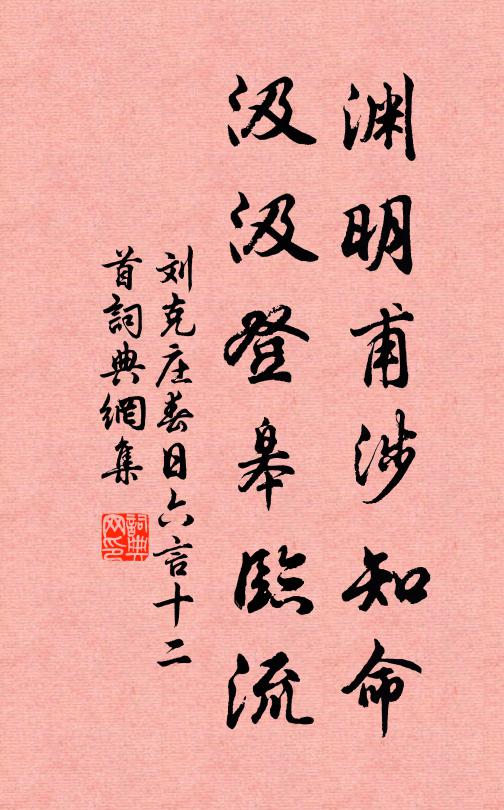 渊明甫涉知命
汲汲登皋臨流
刘克庄春日六言十二
首詞典網集
詞典网印